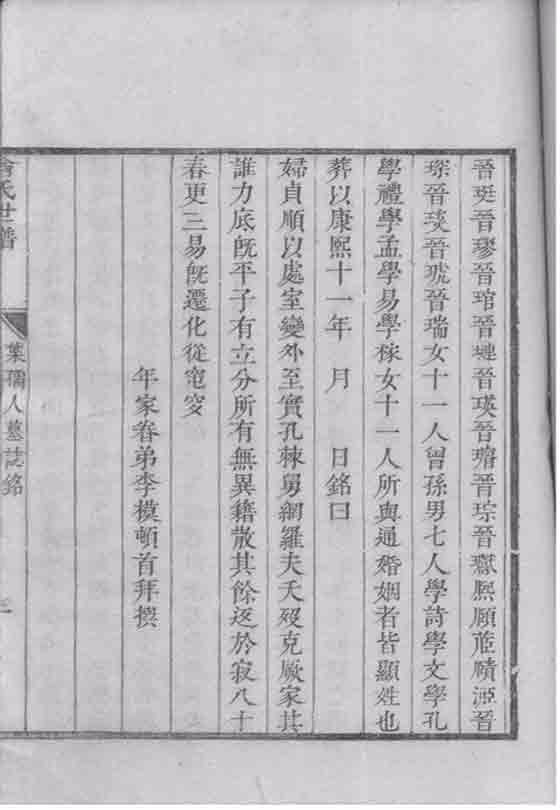 晉珽晉璆晉琯晉璉晉瑛晉璿晉琮晉嶽熙願蒞磧源晉
琛晉琰晉琥晉瑞女十一人曾孫男七人學詩學文學孔
學禮學孟學易學稼女十一人所與通婚姻者皆顯姓也
葬以康熙十一年 月 日銘曰
婦貞順以處室變外至實孔棘舅網羅夫夭歿克厥家其
誰力底旣平子有立分所有無異籍散其餘返於寂八十
春更三易旣遷化從窀穸
年家眷弟李模頓首拜撰
氏世譜
葉孺人墓誌銘